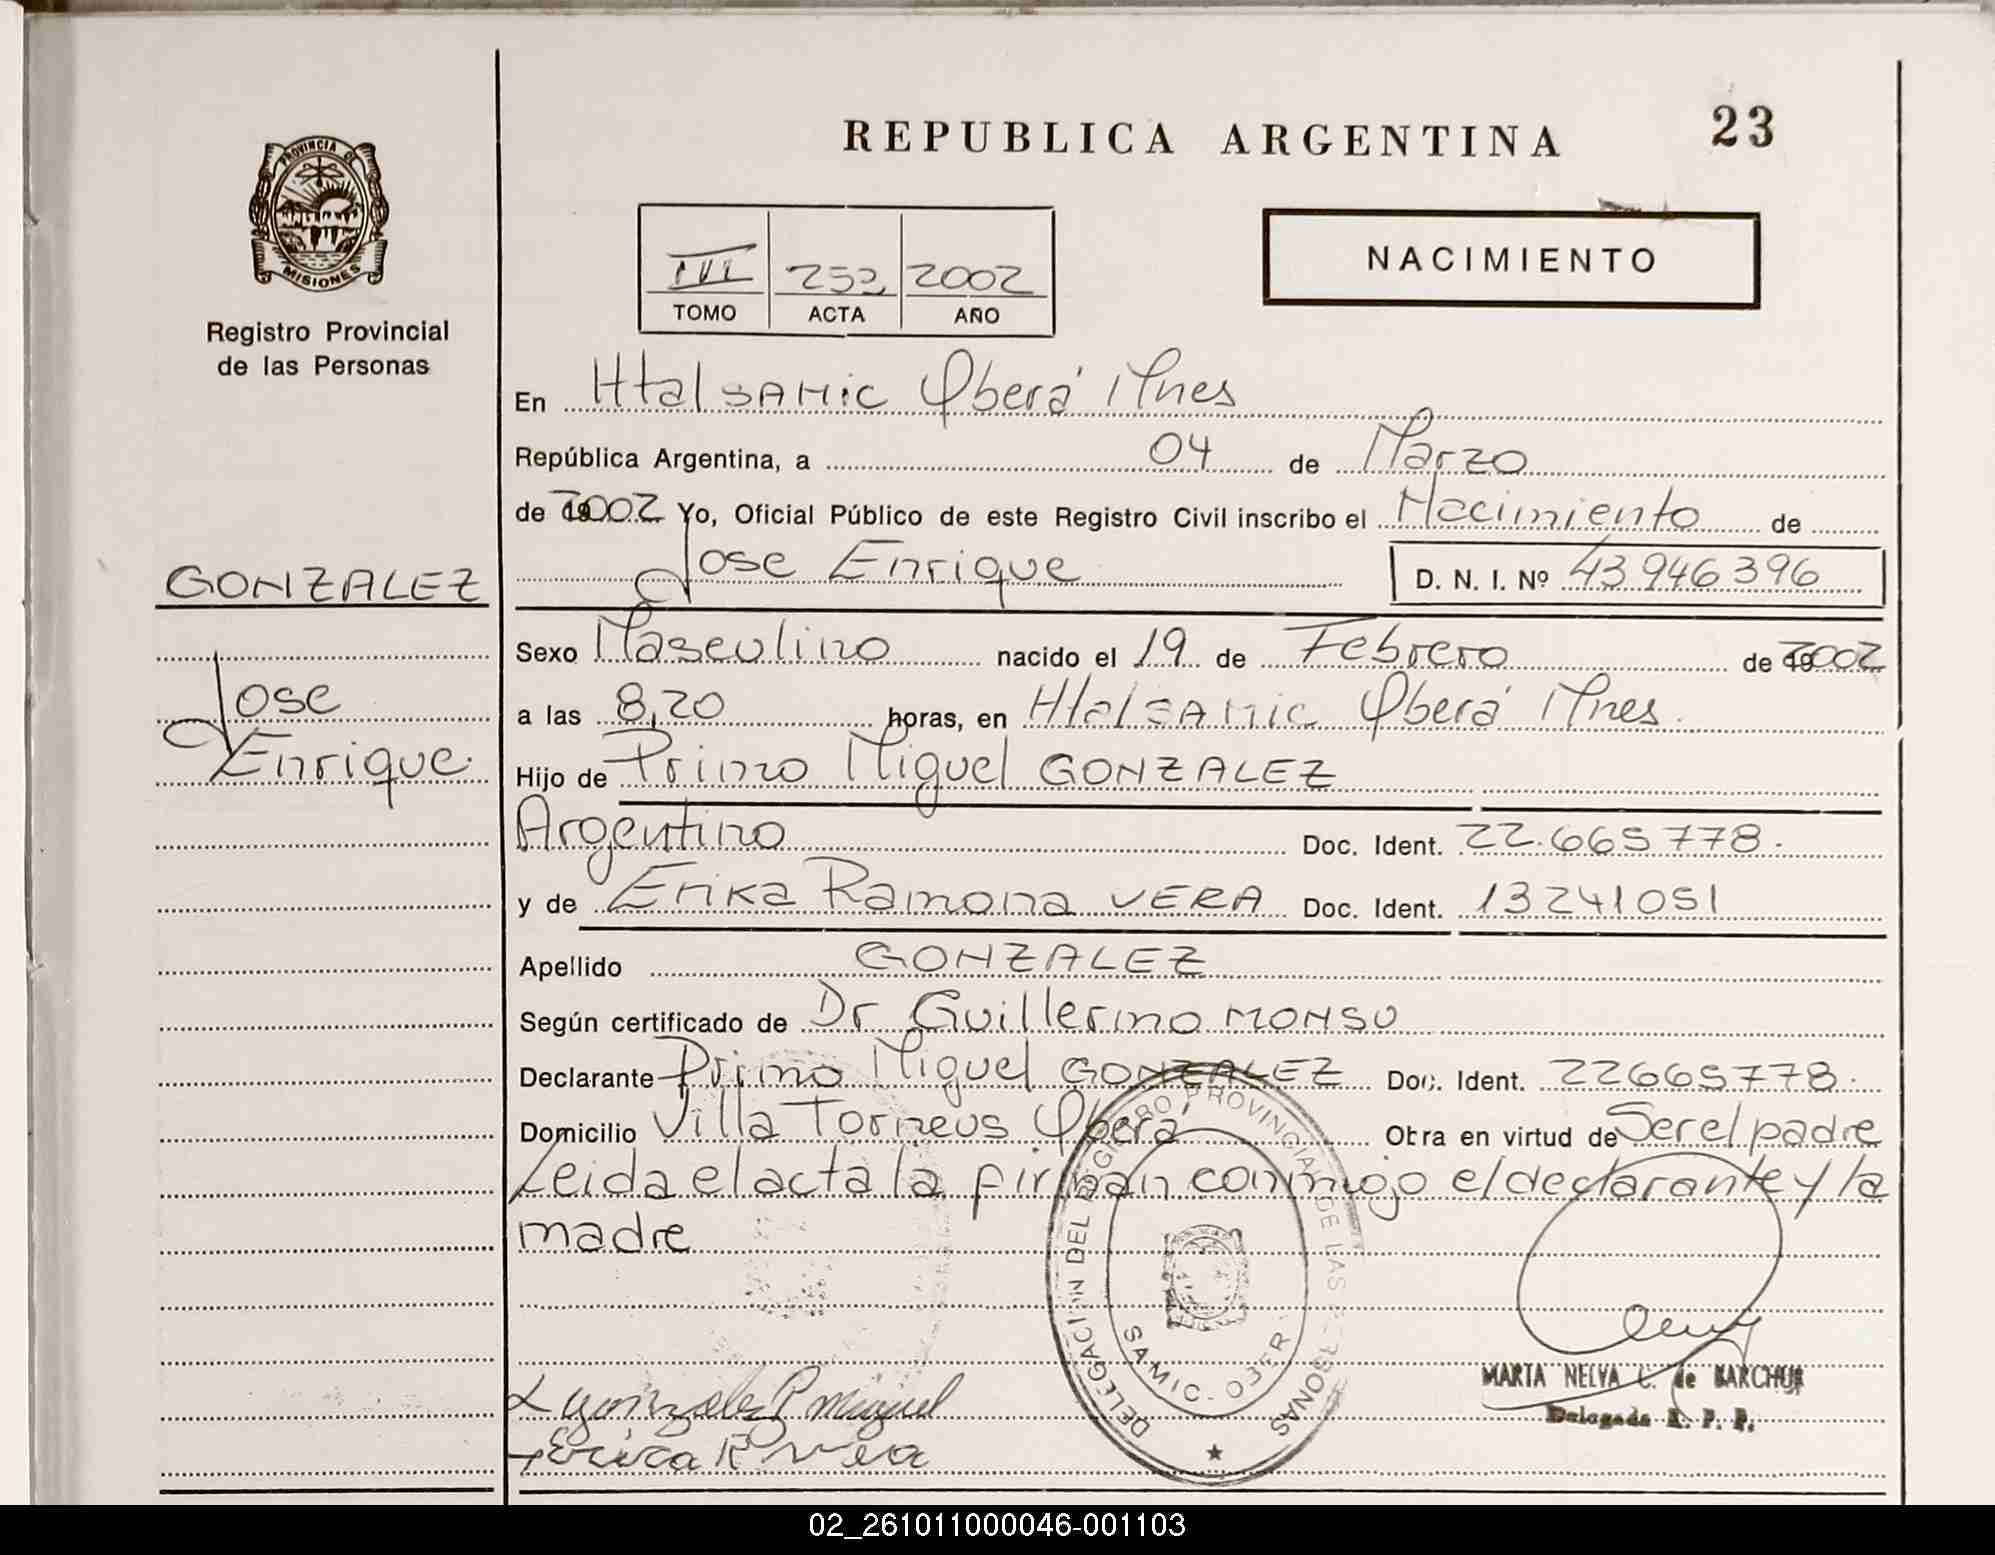 REPUBLICA ARGENTINA
23
PROVINCIA DE
MISIONES
Registro Provincial
de las Personas
NACIMIENTO
III 252 2002
TOMO ACTA AÑO
En Htal SAMic Oberá Mnes
República Argentina, a 04 de Marzo
de 2002 Yo, Oficial Público de este Registro Civil inscribo el Nacimiento de
Jose Enrique D. N. I. Nº 43.946396
GONZALEZ
Jose
Enrique
Sexo Masculino nacido el 19 de Febrero de 2002
a las 8,20 horas, en Htal SAMic Oberá Mnes.
Hijo de Primo Miguel GONZALEZ
Argentino Doc. Ident. 22.665778.
y de Erika Ramona VERA Doc. Ident. 13241051
Apellido GONZALEZ
Según certificado de Dr Guillermo MONSU
Declarante Primo Miguel GONZALEZ Doc. Ident. 22665778.
Domicilio Villa Torneus Oberá Obra en virtud de Ser el padre
Leida el acta la firman conmigo el declarante y la
madre
DELEGACION DEL REGISTRO PROVINCIAL DE LAS PERSONAS
SAMIC.
gonzalez P miguel
Erica R vera
MARIA NELVA C. de BARCHUK
Delegada R. P. P.
02_261011000046-001103